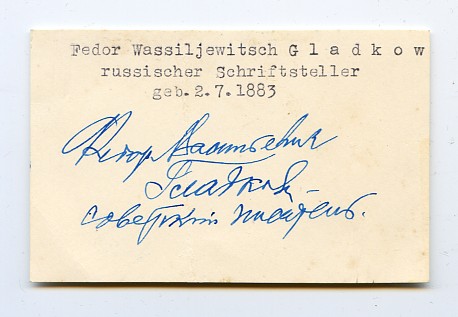 Fedor Wassiljewitsch G l a d k o w
russischer Schriftsteller
geb. 2.7.1883
Федор Васильевич
Гладков,
советский писатель.